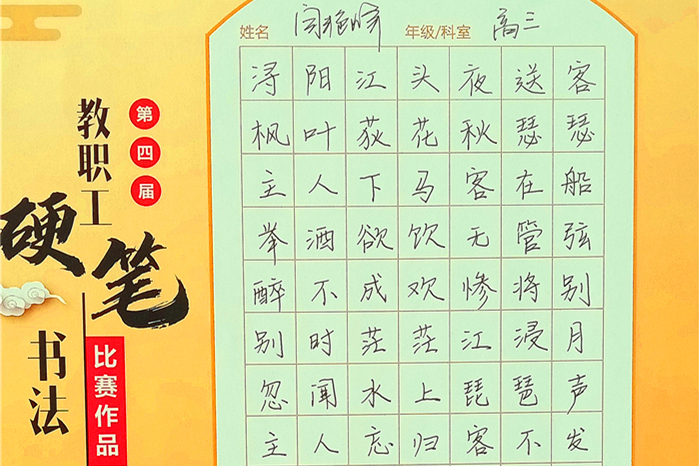 姓名 年级/科室 高三
浔阳江头夜送客
枫叶荻花秋瑟瑟
主人下马客在船
举酒欲饮无管弦
醉不成欢惨将别
别时茫茫江浸月
忽闻水上琵琶声
主人忘归客不发
第四届
教职工
硬笔
书法
比赛作品